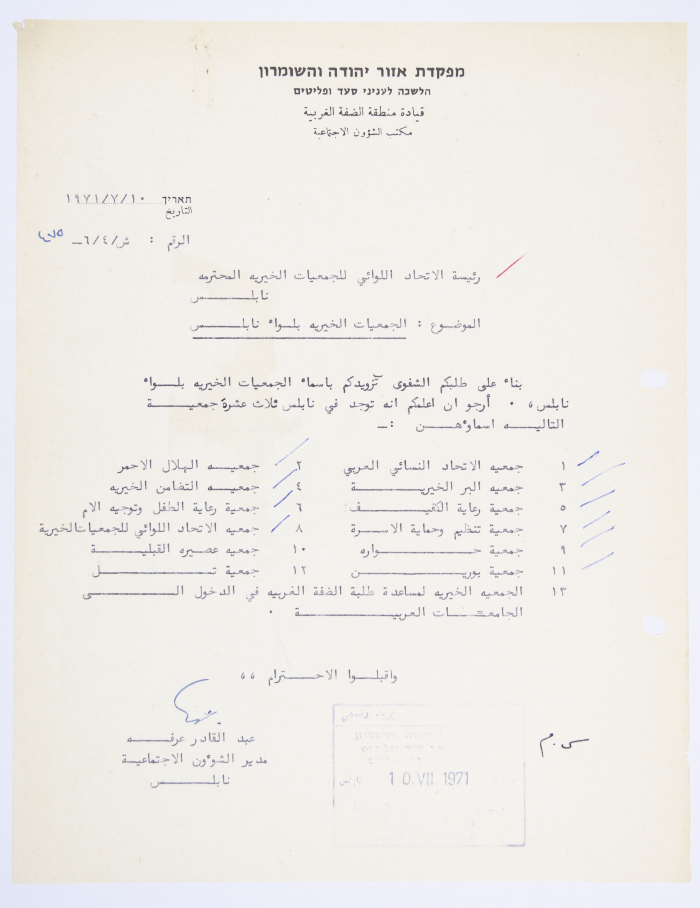 מפקדת אזור יהודה והשומרון
הלשכה לעניני סעד ופליטים
قيادة منطقة الضفة الغربية
مكتب الشؤون الاجتماعية
תאריך ١٩٧١/٧/١٠
التاريخ
الرقم : ش/٤/٦ــ ٤٧٥
رئيسة الاتحاد اللوائي للجمعيات الخيريه المحترمه
نابلــــــس
الموضوع : الجمعيات الخيريه بلواء نابلــــــس
بناء على طلبكم الشفوى تزويدكم باسماء الجمعيات الخيريه بلــــواء
نابلس ، . أرجو ان اعلمكم انه توجد في نابلس ثلاث عشرة جمعيــــــة
التاليـــه اسماؤهـــن :ــ
١ جمعيه الاتحاد النسائي العربي ٢ جمعيــــه الهلال الاحمر
٣ جمعية البر الخيريــــــــة ٤ جمعيـــه التضامن الخيريه
٥ جمعية رعاية الكفيــــــــف ٦ جمعية رعاية الطفل وتوجيه الام
٧ جمعية تنظيم وحماية الاسرة ٨ جمعيه الاتحاد اللوائي للجمعيات الخيرية
٩ جمعية حـــــــــــواره ١٠ جمعيه عصيره القبليـــــــة
١١ جمعية بوريــــــــــــن ١٢ جمعية تـــــــــــــــل
١٣ الجمعيه الخيريه لمساعدة طلبة الضفة الغربيه في الدخول الــــــى
الجامعـــات العربيــــــــــة .
واقبلـــوا الاحـــترام ،،
عبد القادر عرفـــه
مدير الشؤون الاجتماعية
نابلــــــس
س.م
10.VII 1971